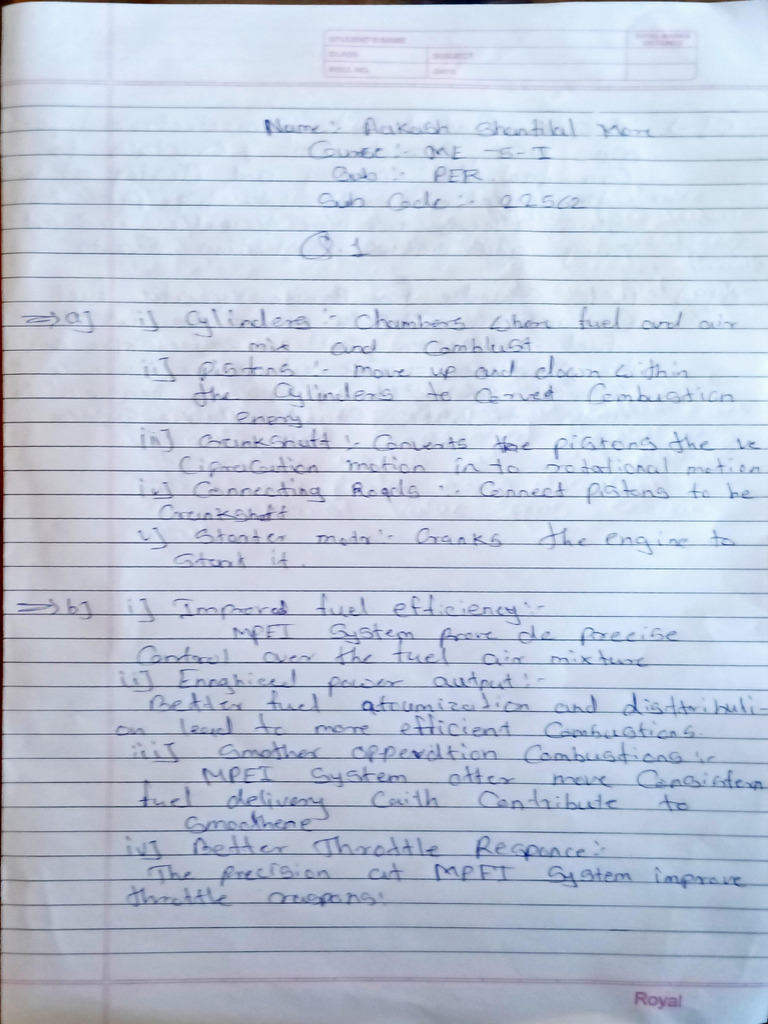 STUDENT'S NAME
CLASS
SUBJECT
ROLL NO.
DATE
Name :- Aakash Shantilal More
Course :- ME - 5 - I
Sub :- PER
Sub Code :- 22562
Q.1
=> a] i] Cylinders :- Chambers where fuel and air
mix and Comblust
ii] pistons :- move up and down within
the Cylinders to Conved Combustion
eneny
iii] Crunkshuft :- Converts the pistons the re
Ciprocution motion in to rotational motion
iv] Connecting Roads :- Connect pistons to he
Crunkshoft
v] Starter motr :- Cranks the engine to
Stark it.
=> b] i] Improved fuel efficiency :-
MPFI System prove de precise
Control over the fuel air mixture
ii] Ennghiced power autput :-
Better fuel atrumization and disttribuli-
on lead to more efficient Combustions.
iii] Smother opperdtion Combustions :-
MPFI System offer more Consisten
fuel delivery Caith Contribute to
Smoothene
iv] Better Throttle Responce :-
The precision at MPFI System improve
throttle respons.
Royal